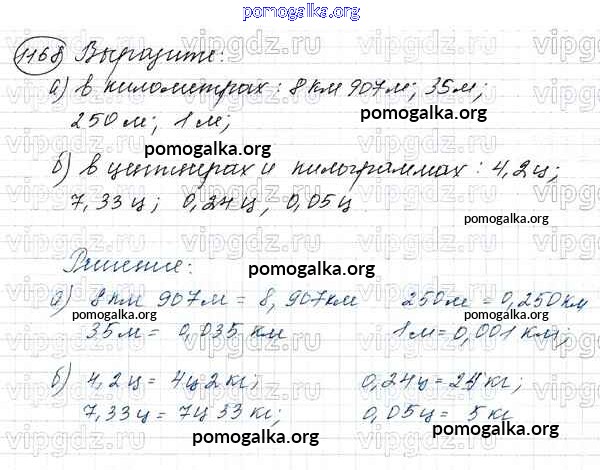 pomogalka.org
1168 Выразите:
а) в километрах: 8 км 907 м; 35 м;
pomogalka.org
250 м; 1 м;
pomogalka.org
б) в центнерах и килограммах: 4,2 ц;
7,33 ц; 0,24 ц, 0,05 ц
pomogalka.org
Решение:
pomogalka.org
а) 8 км 907 м = 8,907 км 250 м = 0,250 км
pomogalka.org pomogalka.org
35 м = 0,035 км 1 м = 0,001 км;
б) 4,2 ц = 4 ц 2 кг; 0,24 ц = 24 кг
7,33 ц = 7 ц 33 кг; 0,05 ц = 5 кг
pomogalka.org pomogalka.org
vipgdz.ru